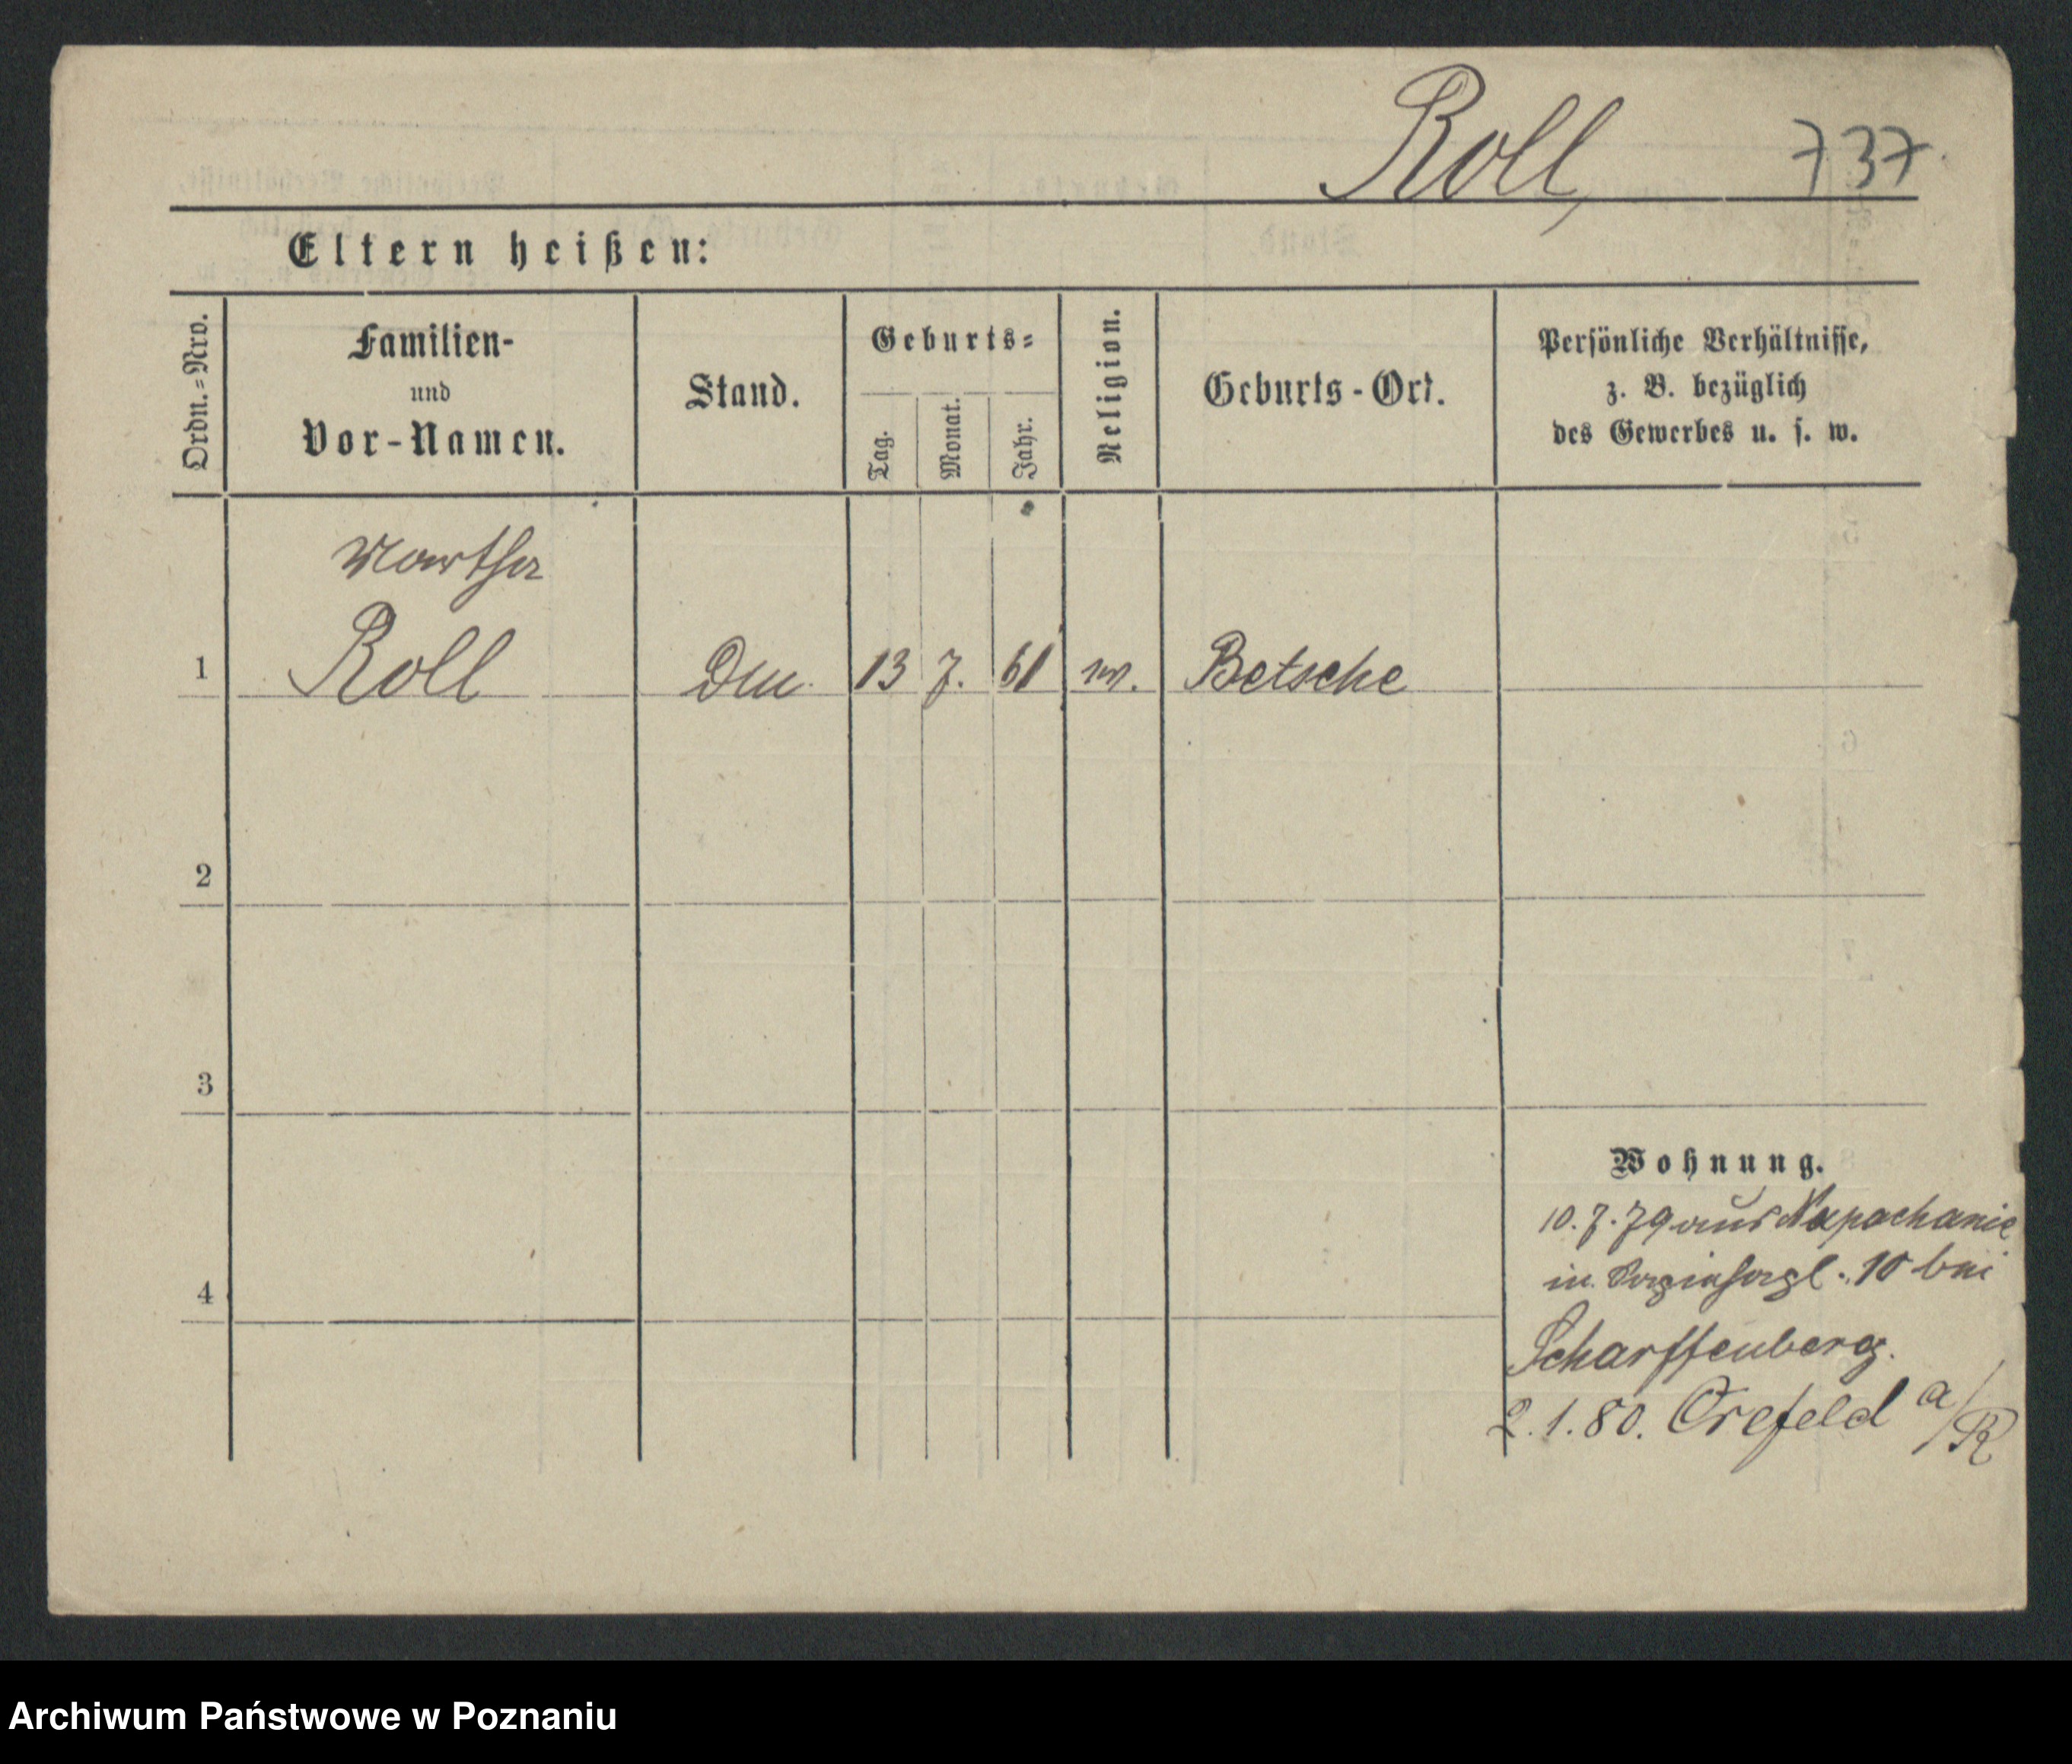 Roll, 737
Eltern heißen:
Ordn.=Nro.
Familien-
und
Vor-Namen.
Stand.
Geburts=
Tag.
Monat.
Jahr.
Religion.
Geburts-Ort.
Persönliche Verhältnisse,
z. B. bezüglich
des Gewerbes u. s. w.
Martha
1 Roll 13 7. 61 Betsche
2
3
4
Wohnung.
10.7.79 aus Napachanie
in 10 bei
Scharffenberg.
2.1.80. Crefeld a/R
Archiwum Państwowe w Poznaniu